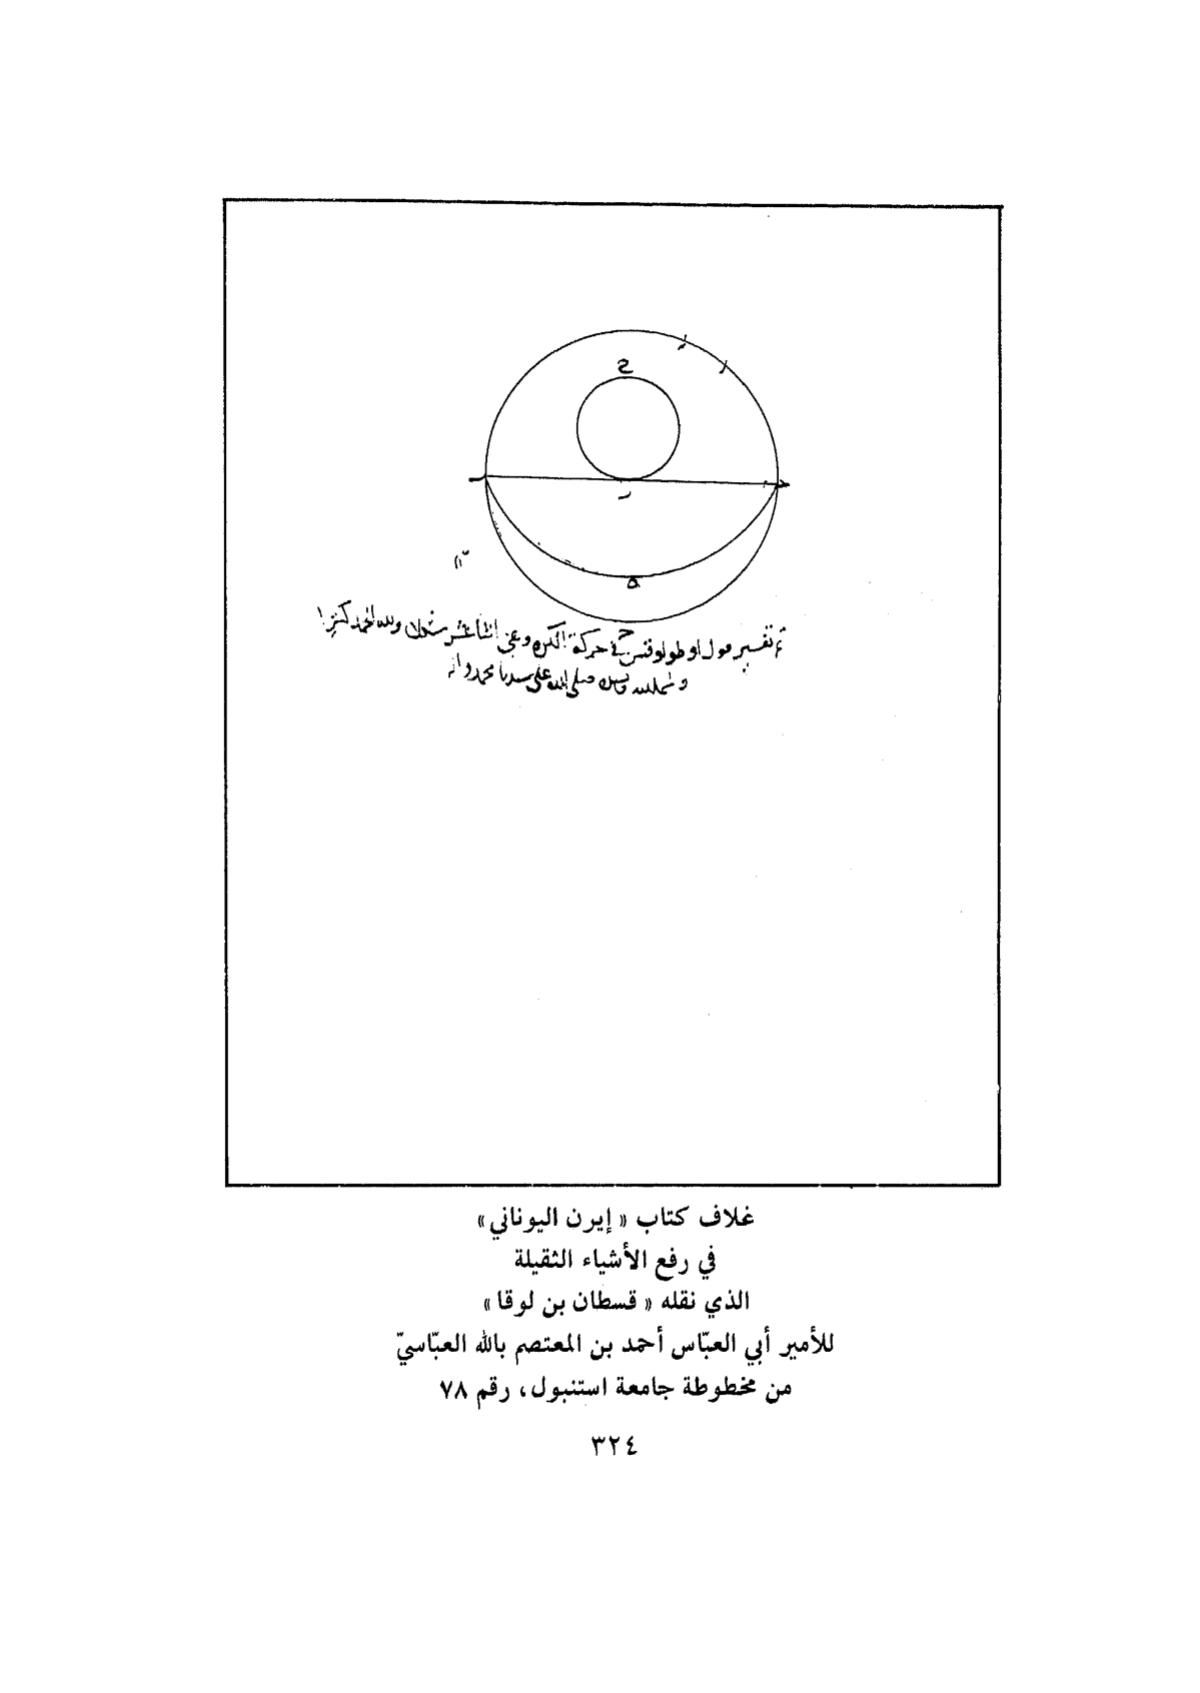 تم تفسير قول اوطولوقس في حركة الكره وهي اثنا عشر شكلا ولله الحمد كثيرا
وصلى الله على سيدنا محمد واله
غلاف كتاب « إيرن اليوناني »
في رفع الأشياء الثقيلة
الذي نقله « قسطان بن لوقا »
للأمير أبي العبّاس أحمد بن المعتصم بالله العبّاسيّ
من مخطوطة جامعة استنبول، رقم ٧٨
٣٢٤